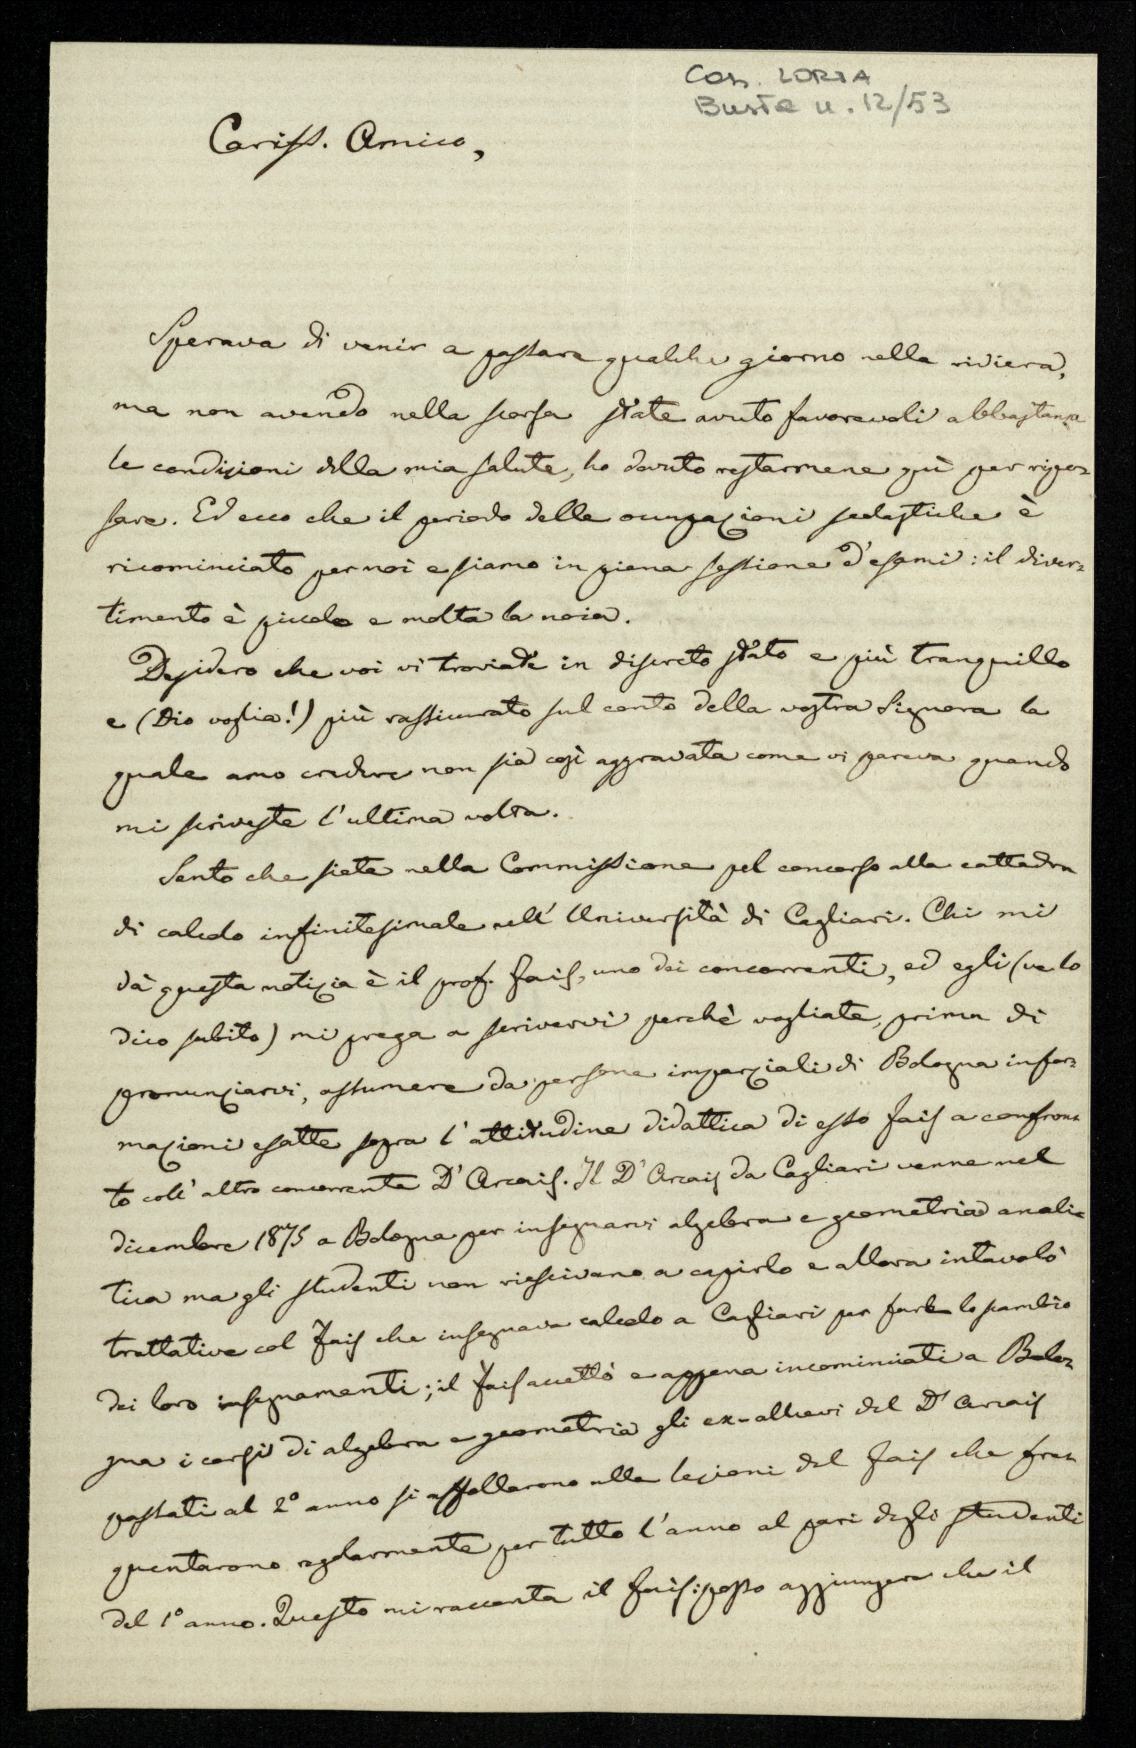 Cas. LORIA
Busta n. 12/53
Cariss. Amico,
Sperava di venir a passare qualche giorno nella riviera,
ma non avendo nella scorsa state avuto favorevoli abbastanza
le condizioni della mia salute, ho dovuto restarmene quì per ripo=
sare. Ed ecco che il periodo delle occupazioni scolastiche è
ricominciato per noi e siamo in piena sessione d'esami: il diver=
timento è piccolo e molta la noia.
Desidero che voi vi troviate in discreto stato e più tranquillo
e (Dio voglia!) più rassicurato sul conto della vostra Signora la
quale amo credere non sia così aggravata come vi pareva quando
mi scriveste l'ultima volta.
Sento che siete nella Commissione pel concorso alla cattedra
di calcolo infinitesimale nell'Università di Cagliari. Chi mi
dà questa notizia è il prof. Fais, uno dei concorrenti, ed egli (ve lo
dico subito) mi prega a scrivervi perchè vogliate, prima di
pronunziarvi, assumere da persone imparziali di Bologna infor=
mazioni esatte sopra l'attitudine didattica di esso Fais a confron=
to coll'altro concorrente D'Arcais. Il D'Arcais da Cagliari venne nel
dicembre 1875 a Bologna per insegnarvi algebra e geometria anali=
tica ma gli studenti non riescivano a capirlo e allora intavolò
trattative col Fais che insegnava calcolo a Cagliari per fare lo scambio
dei loro insegnamenti; il Fais accettò e appena incominciati a Bolo=
gna i corsi di algebra e geometria gli ex-allievi del D'Arcais
passati al 2° anno si affollarono alle lezioni del Fais che fre=
quentarono regolarmente per tutto l'anno al pari degli studenti
del 1° anno. Questo mi racconta il Fais: posso aggiungere che il